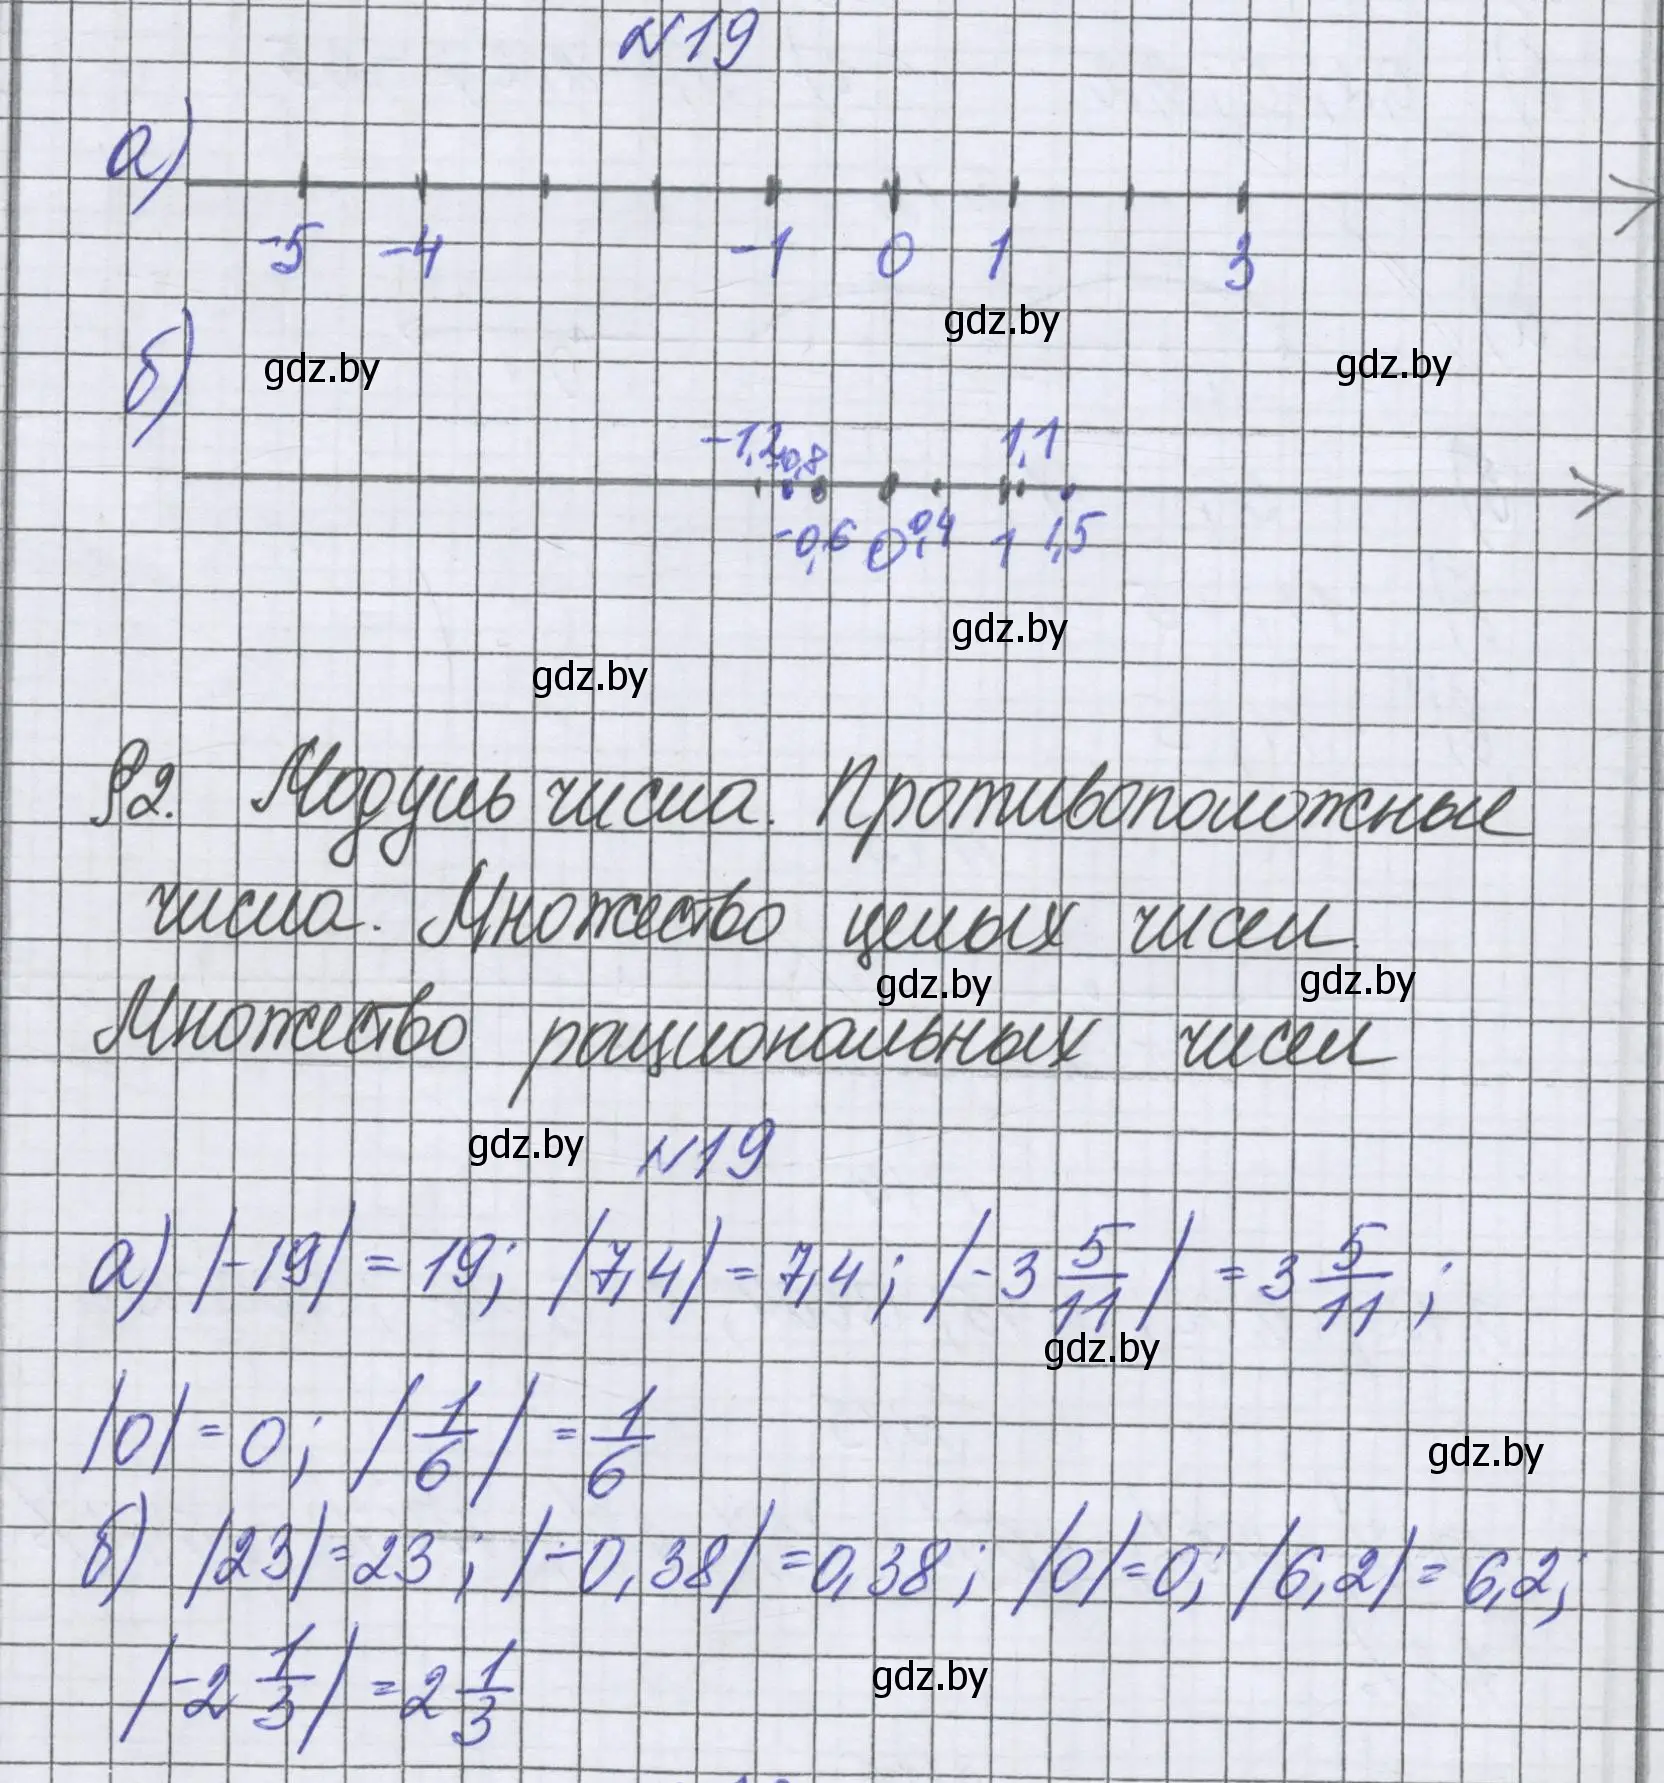 №19
а)
-5 -4 -1 0 1 3
gdz.by
gdz.by gdz.by
б)
-1,2 -0,8 1,1
-0,6 0 0,4 1 1,5
gdz.by
gdz.by
§2. Модуль числа. Противоположные
числа. Множество целых чисел.
gdz.by gdz.by
Множество рациональных чисел
gdz.by №19
а) |-19| = 19; |7,4| = 7,4; |-3 5/11| = 3 5/11;
gdz.by
|0| = 0; |1/6| = 1/6
gdz.by
б) |23| = 23; |-0,38| = 0,38; |0| = 0; |6,2| = 6,2;
|-2 1/3| = 2 1/3
gdz.by